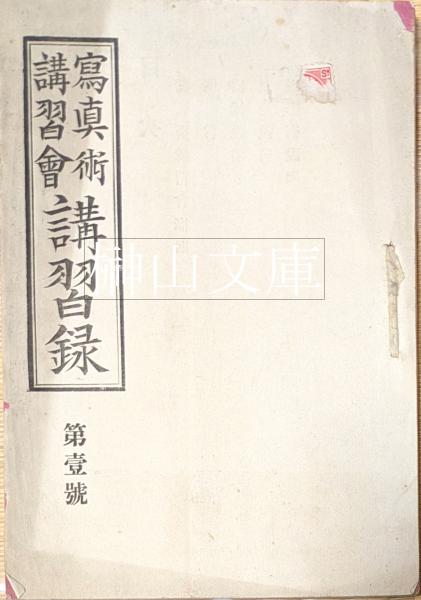 寫真術
講習會
講習録
第壹號
榊山文庫